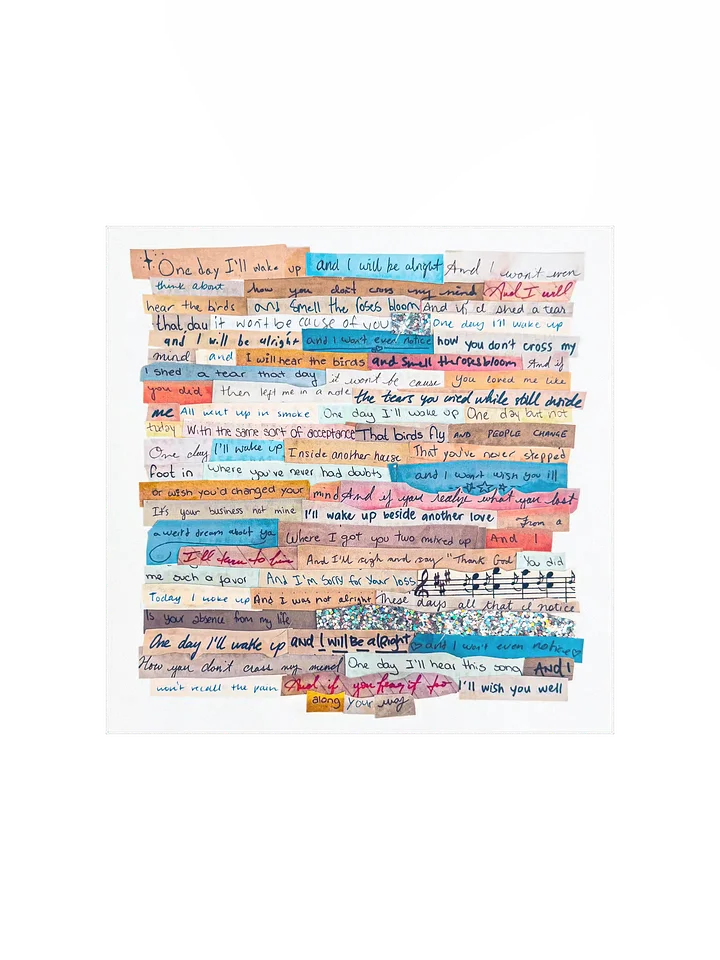 One day I'll wake up and I will be alright And I won't even
think about how you don't cross my mind And I will
hear the birds and smell the roses bloom And if I'd shed a tear
that day it won't be cause of you One day I'll wake up
and I will be alright and I won't even notice how you don't cross my
mind and I will hear the birds and smell the roses bloom And if
I shed a tear that day it won't be cause You loved me like
you did then left me in a note the tears you cried while still inside
me All went up in smoke One day I'll wake up One day but not
today With the same sort of acceptance That birds fly AND PEOPLE CHANGE
One day I'll wake up Inside another house That you've never stepped
foot in where you've never had doubts and I won't wish you ill
or wish you'd changed your mind And if you realize what you lost
It's your business not mine I'll wake up beside another love From a
a weird dream about ya Where I got you two mixed up And I
I'll turn to him And I'll sigh and say "Thank God" You did
me such a favor And I'm sorry for your loss
Today I woke up And I was not alright These days all that I notice
Is your absence from my life
One day I'll wake up and I will Be alright and I won't even notice
How you don't cross my mind One day I'll hear this song AND I
won't recall the pain And if you hear it too I'll wish you well
along your way